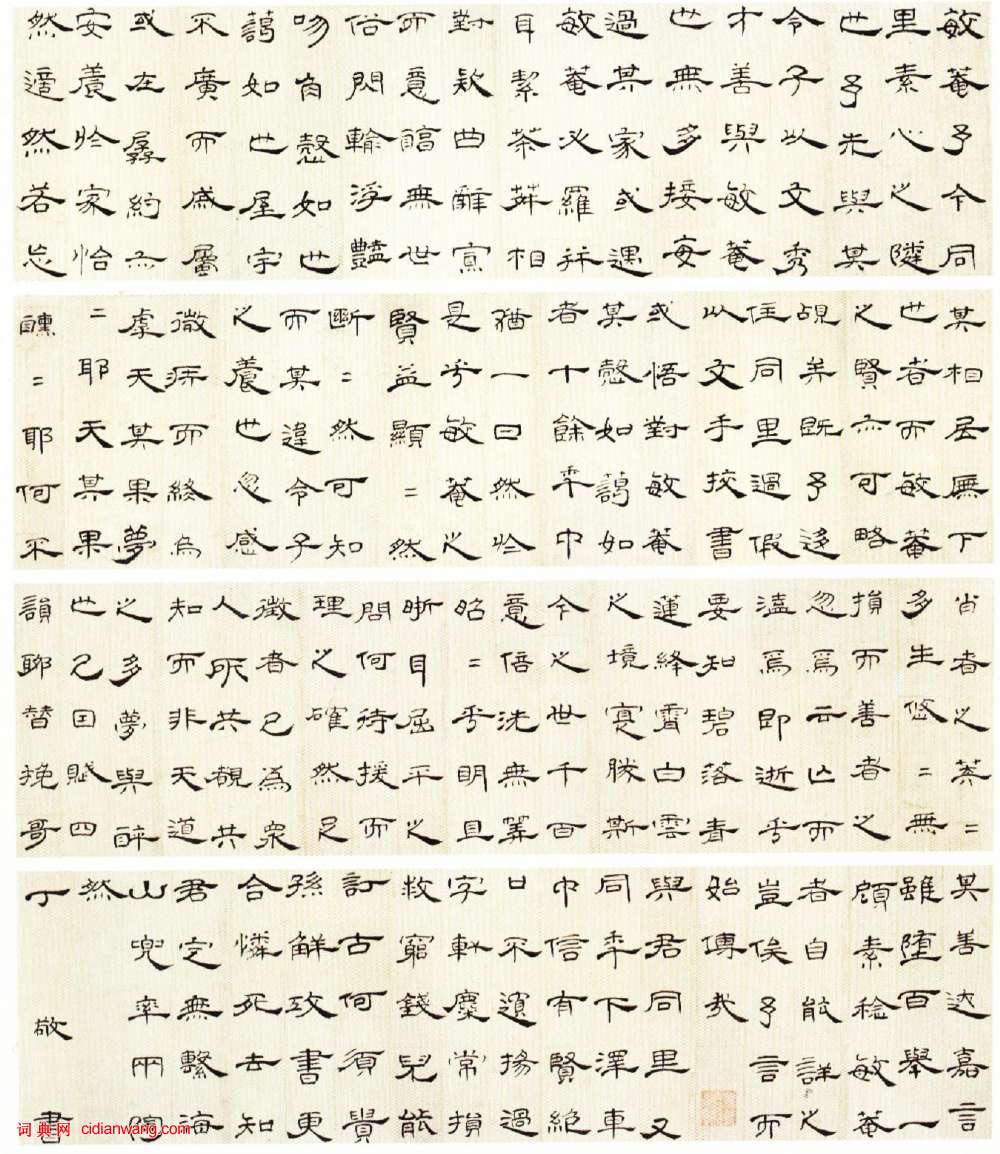 敏菴予今同
里素心之隣
也予先與其
令子以文秀
才善與敏菴
世無多接每
過其家或遇
敏菴必羅幷
耳絜茶荈相
對欵曲雖寘
而意無世
俗閃輸浮豔
吻肻愨如也
藹如也屋宇
不廣而處屬
或在孱約亦
安養於家怡
然適然若忘
其相居廡下
也者而敏菴
之賢亦可略
覘矣既予迻
住同里過假
以文手挍書
或悟對敏菴
其愨如藹如
者十餘年中
猶一日然於
是乎敏菴之
賢益顯=然
斷=然可知
而其違令子
之養也忽感
微疴而終烏
虖天其果夢
=耶天其果
醺=耶何不
肖者之=
多生悠=無
損而善者之
忽焉云亾而
溘焉即逝乎
要知碧落青
蓮絳霄白雲
之境寔勝斯
今之世千百
意倍洗無筭
昭=乎明且
晣目屈平之
問何待援而
理之確然足
徵者已為衆
人所共覩共
知而非天道
之多夢與醉
也已因賦四
韻聊替挽哥
其善達嘉言
雖堕百舉一
顧素稔敏菴
者自能詳之
豈俟予言而
始傳哉
與君同里又
同年下澤車
中信有賢絶
口不擯揚過
字軒麋常損
救窮錢兒能
訂古何須貴
孫解攻書更
合憐死去知
君定無繫海
山兜率兩
然
丁敬書
词典网 cidianwang.com